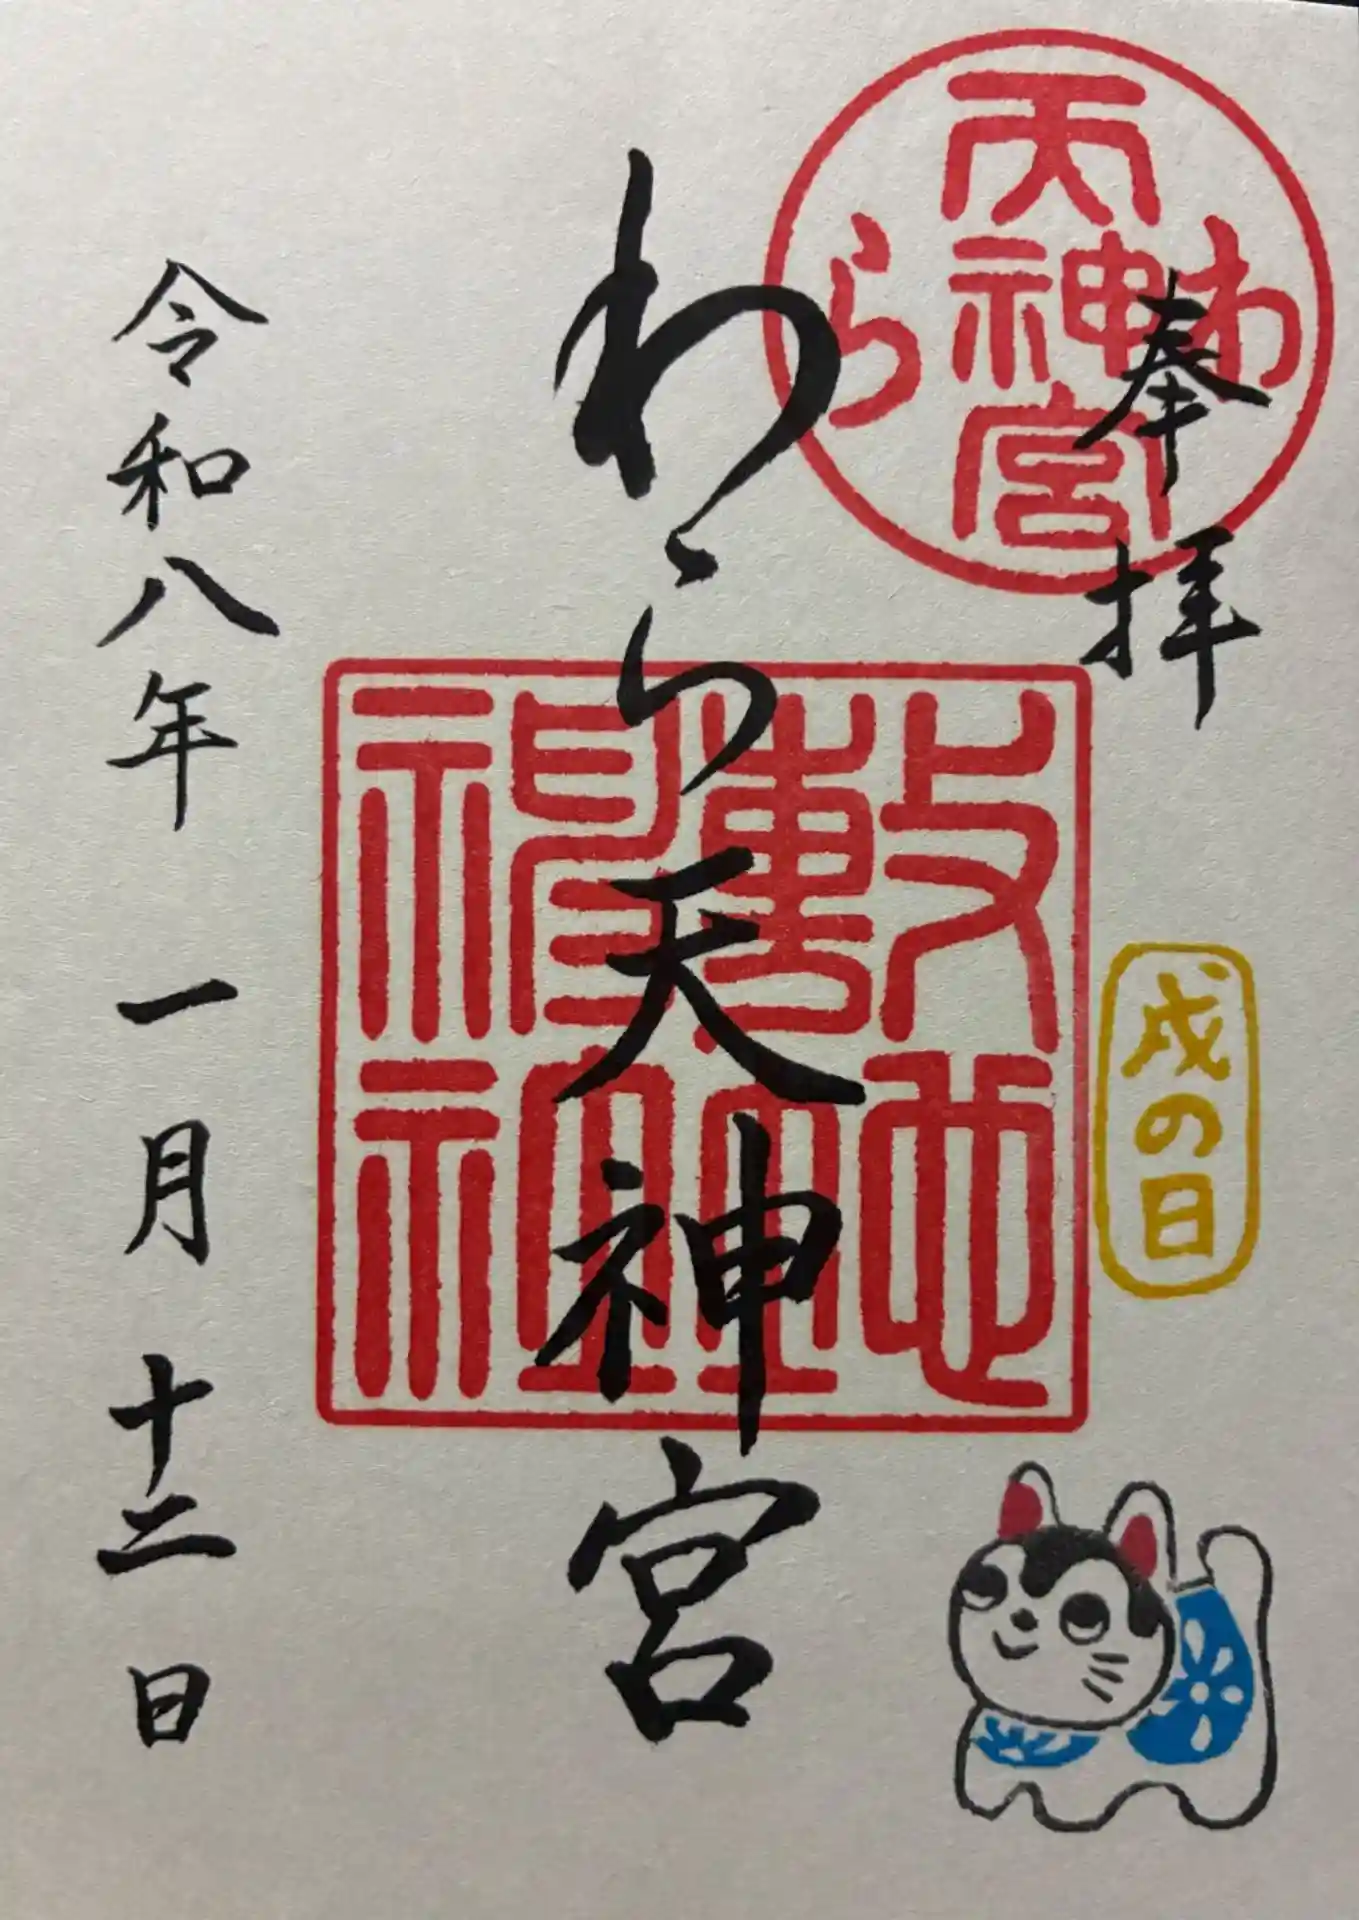 奉拝
わら天神宮
戌の日
わら天神宮
敷地
神社
令和八年 一月 十二日